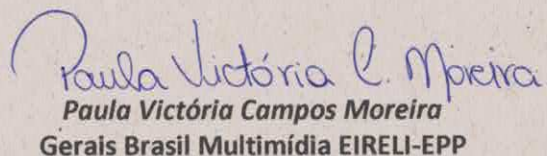 Paula Victória C. Moreira
Paula Victória Campos Moreira
Gerais Brasil Multimídia EIRELI-EPP